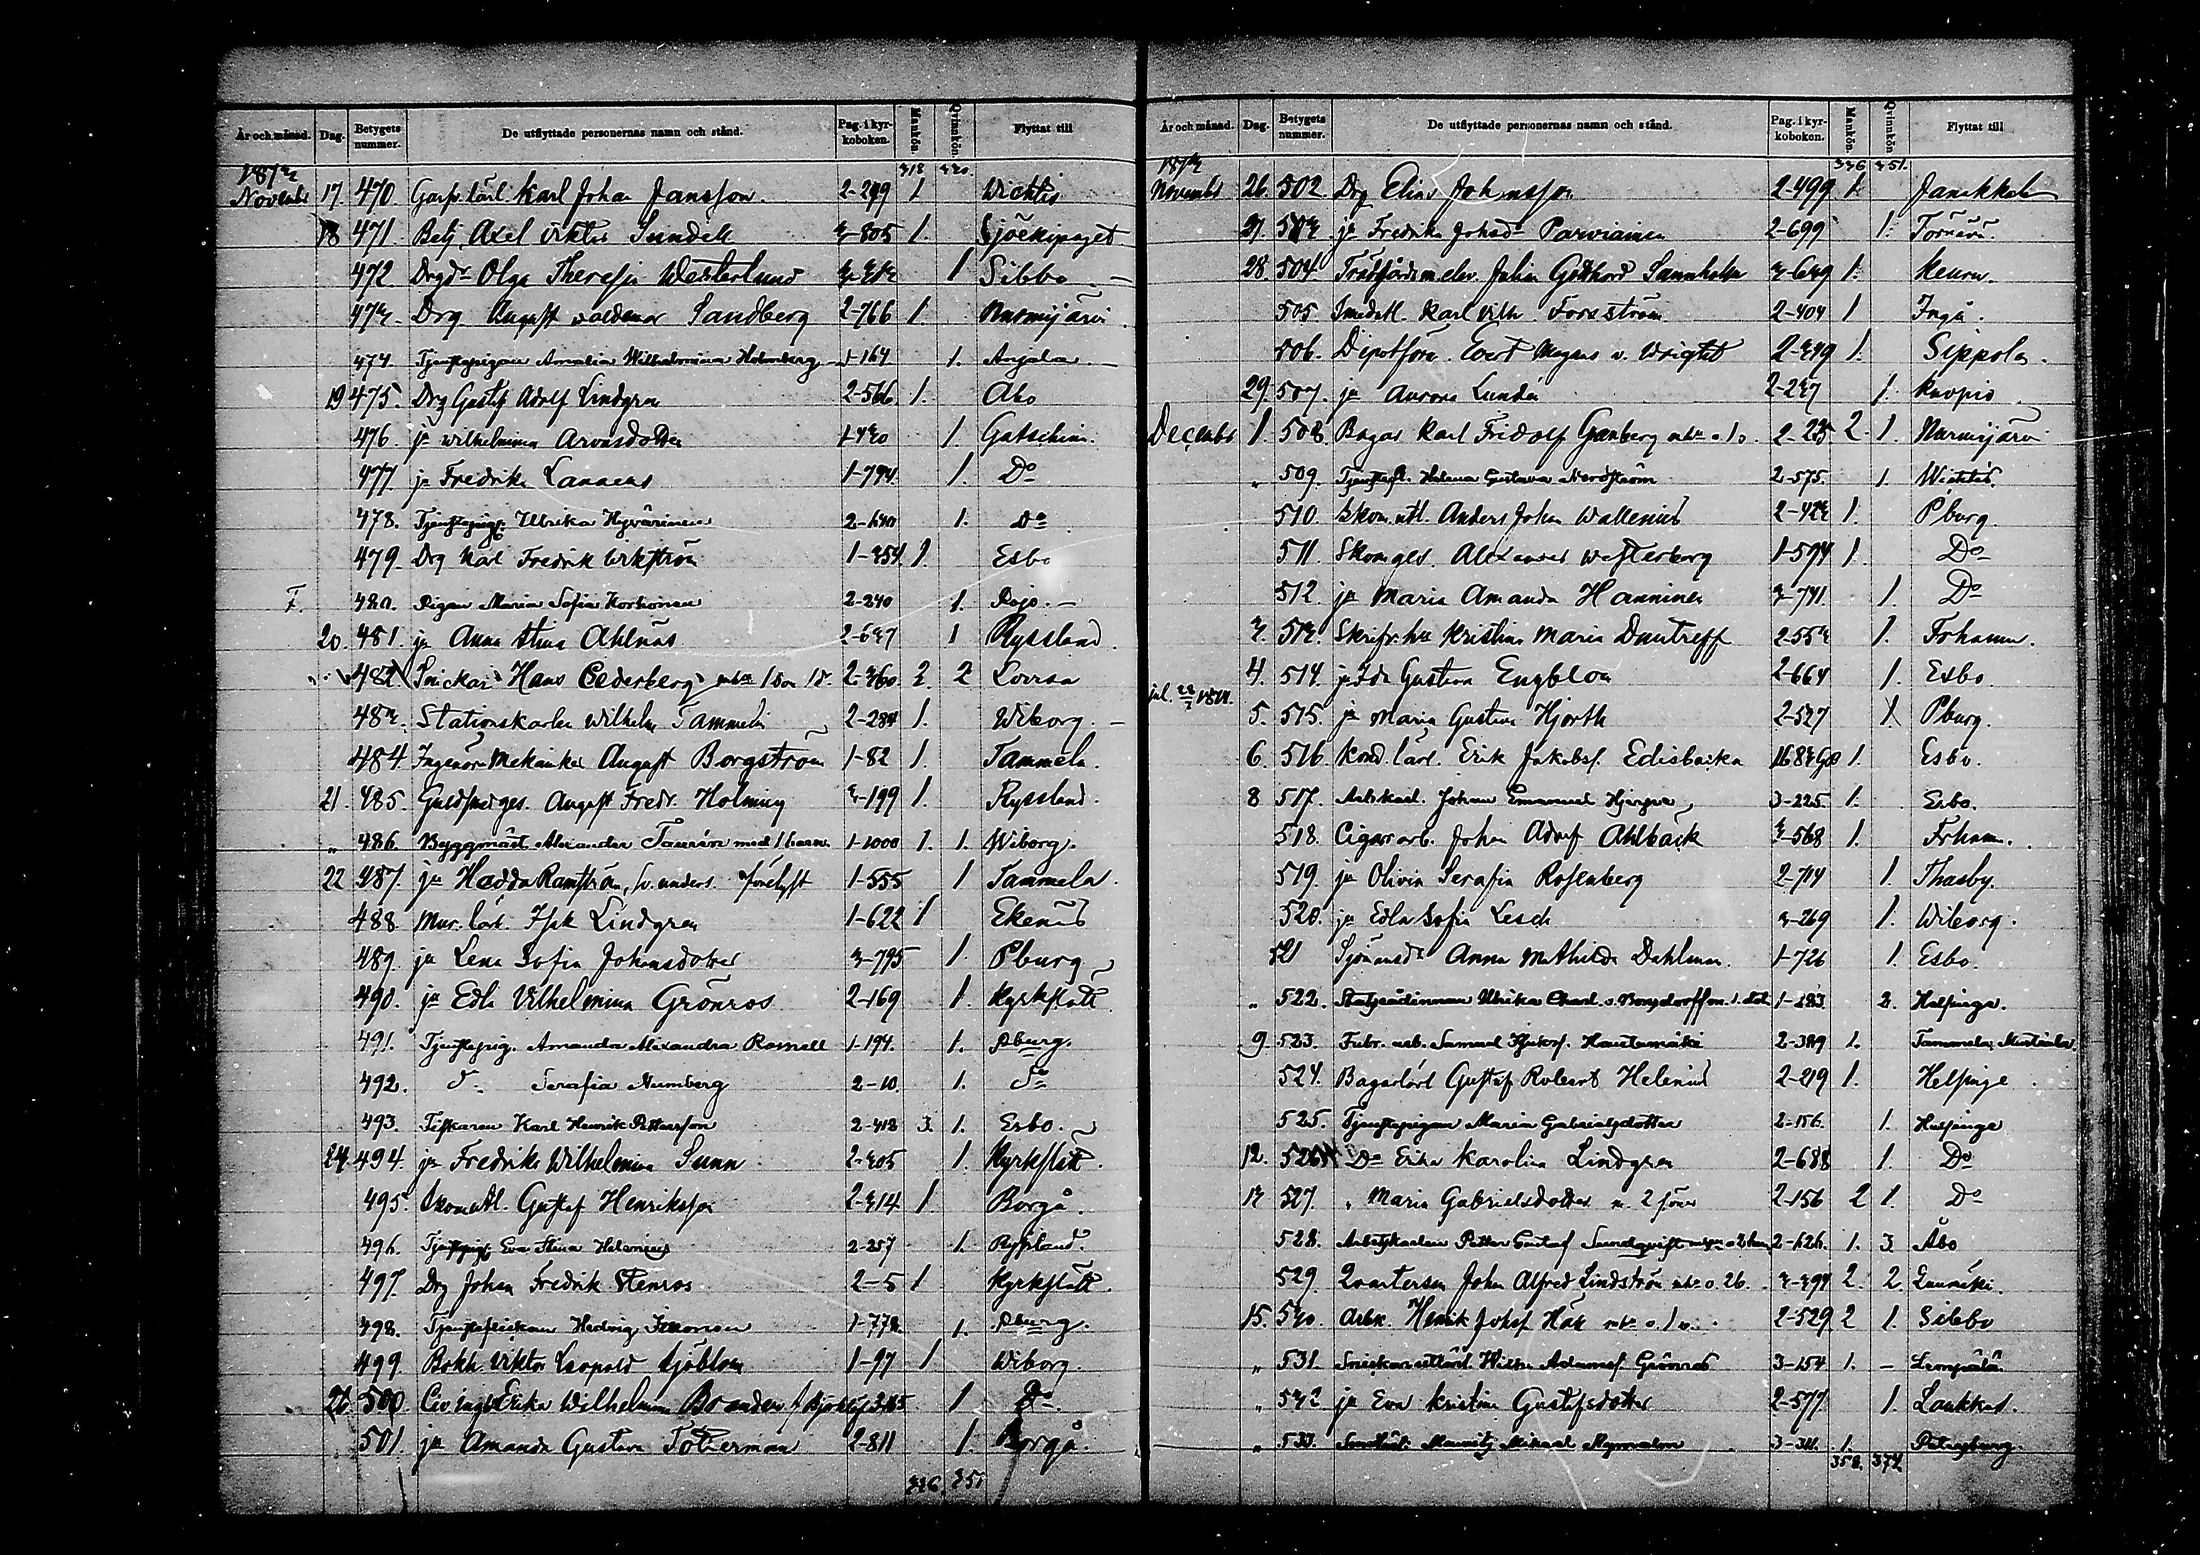 År och månad. Dag. Betygets nummer. De utflyttade personernas namn och stånd. Pag. i kyrkoboken. Mankön. Qvinnkön. Flyttat till
1873 318 330
Novembr 17. 470. Garfv. lärl. Karl Johan Jansson. 2-299 1 Wichtis
18 471. Betj. Axel Viktor Sundell 3-805 1. Sjöekipaget
472. Drgdr Olga Theresia Westerlund 1 Sibbo
473. Drg August Valdemar Sandberg 2-766 1. Nurmijärvi
474. Tjenstepigan Amalia Wilhelmina Holmberg 1-164 1. Anjala
19 475. Drg Gustaf Adolf Lindgren 2-566 1. Åbo
476. ja Wilhelmina Arvusdotter 1-430 1. Gatschina
477 ja Fredrika Lannens 1-794 1. Do
478. Tjenstepig. Ulrika Hyvärinen 2-640 1. Do
479. Drg Karl Fredrik Wikström 1-354. 1. Esbo
F. 480. Pigan Maria Sofia Korhonen 2-240 1. Pojo.
20. 481. ja Anna Stina Ahlnäs 2-637 1 Ryssland.
482 Snickar Hans Cederberg m. hu 1 son 1 d. 2-360 2. 2 Lovisa
483. Stationskarlen Wilhelm Tammelin 2-284 1. Wiborg.
484. Ingeniör Mekaniker August Borgström 1-82 1. Tammela.
21. 485. Guldsmedges. August Fredr. Holming 3-199 1. Ryssland.
" 486. Byggmäst. Alexander Taurén med 1 barn. 1-1000 1. 1. Wiborg.
22 487. ja Hedda Ramström, 1-555 1 Tammela.
488. Mur. lärl. Isak Lindgren 1-622 1 Ekenäs
489. ja Lena Sofia Johansdotter 3-795 1. Pburg
490. ja Edla Vilhelmina Grönroos 2-169 1. Kyrkslätt.
491. Tjenstepig. Amanda Alexandra Ramell 1-194. 1. Pburg.
492. Do Serafia Numberg 2-10. 1. Do
493. Fiskaren Karl Henrik Pettersson 2-418 3. 1. Esbo.
24. 494. ja Fredrika Wilhelmina Sunn 2-305 1. Kyrkslätt.
495. Gustaf Henriksson 2-314 1. Borgå.
496. Tjenstepig. Eva Stina Helenius 2-257 1. Ryssland.
497. Drg Johan Fredrik Stenros 2-5 1 Kyrkslätt.
498. Tjensteflickan Hedvig 1-778. 1. Pburg.
499 Bokh. Viktor Leopold Sjöblom 1-97 1 Wiborg.
26 500. Erika Wilhelmina Brander 1 Do
501. ja Amanda Gustava Tötterman 2-811 1. Borgå.
336. 351
År och månad. Dag. Betygets nummer. De utflyttade personernas namn och stånd. Pag. i kyrkoboken. Mankön. Qvinnkön. Flyttat till
1873 336 351.
Novembr 26. 502. Drg Elias Johansson 2-499 1. Janakkala
27. 503. ja Fredrika Johsdr Parviainen 2-699 1. Torneå.
28. 504. Trädgårdsmelev. Johan Gotthard Sannholm 3-639 1. Keuru.
505. Karl Vilh. Forsström 2-404 1 Ingå.
506. Depotförv. Evert Magnus v. Wright 2-349 1. Sippola.
29. 507. ja Aurora Lundén 2-237 1. Kuopio.
December 1. 508. Bagar Karl Fridolf Granberg m. hu o. 1 s. 2-235 2 1. Nurmijärvi
" 509. Tjenstefl. Helena Gustava Nordström 2-575. 1. Wichtis.
510. Skom. utl. Anders Johan Wallenius 2-423 1. Pburg.
511. Skomges. Alexander Westerberg 1-594 1. Do
512. ja Maria Amanda Hanninen 3-741. 1. Do
3. 513. Skrifv. hu Kristina Maria Dmitreff 2-553 1. Frhamn.
4. 514. ja Ida Gustava Engblom 2-664 1. Esbo.
5. 515. ja Maria Gustava Hjorth 2-527 1. Pburg.
6. 516. Kond. lärl. Erik Jakobsf. Edisbacka 1. Esbo.
8 517. Arbkarl. Johan Emanuel 3-225. 1. Esbo.
518. Cigarrarb. Johan Adolf Ahlbäck 3-568 1. Frhamn.
519. ja Olivia Serafia Rosenberg 2-714 1. Thusby.
520. ja Edla Sofia Lesch 3-269 1. Wiborg.
521 Sjömansd. Anna Mathilda Dahlman. 1-726 1. Esbo.
" 522. Statsrådinnan Ulrika Charl. v. Bonsdorff m. 1. dot. 1-283. 2. Helsinge.
9. 523. Fabr. arb. Samuel Hautamäki 2-389 1. Tammela, Mustiala.
524. Bagarlärl Gustaf Robert Helenius 2-219 1. Helsinge.
525. Tjenstepigan Maria Gabrielsdotter 2-156. 1. Helsinge
12. 526 Do Erika Karolina Lindgren 2-688 1. Do
13 527. " Maria Gabrielsdotter m. 2 söner 2-156 2 1. Do
528. Arbetskarlen Petter Gustaf Sundqvist 2-626. 1. 3. Åbo
529. Qvartersm Johan Alfred Lindström m. hu o. 2 b. 3-394 2. 2.
15. 530. Arbk. Henrik Johsf. Hök m. hu o. 1 s. 2-529. 2 1. Sibbo
" 531. Snickareutlärl. Wilh. Adamsf. Grönroos 3-154 1. - Lempäälä.
" 532 ja Eva Kristina Gustafsdotter 2-577 1. Laukkas.
" 533. Mauritz Mikael 3-311. 1. Petersburg.
358. 374